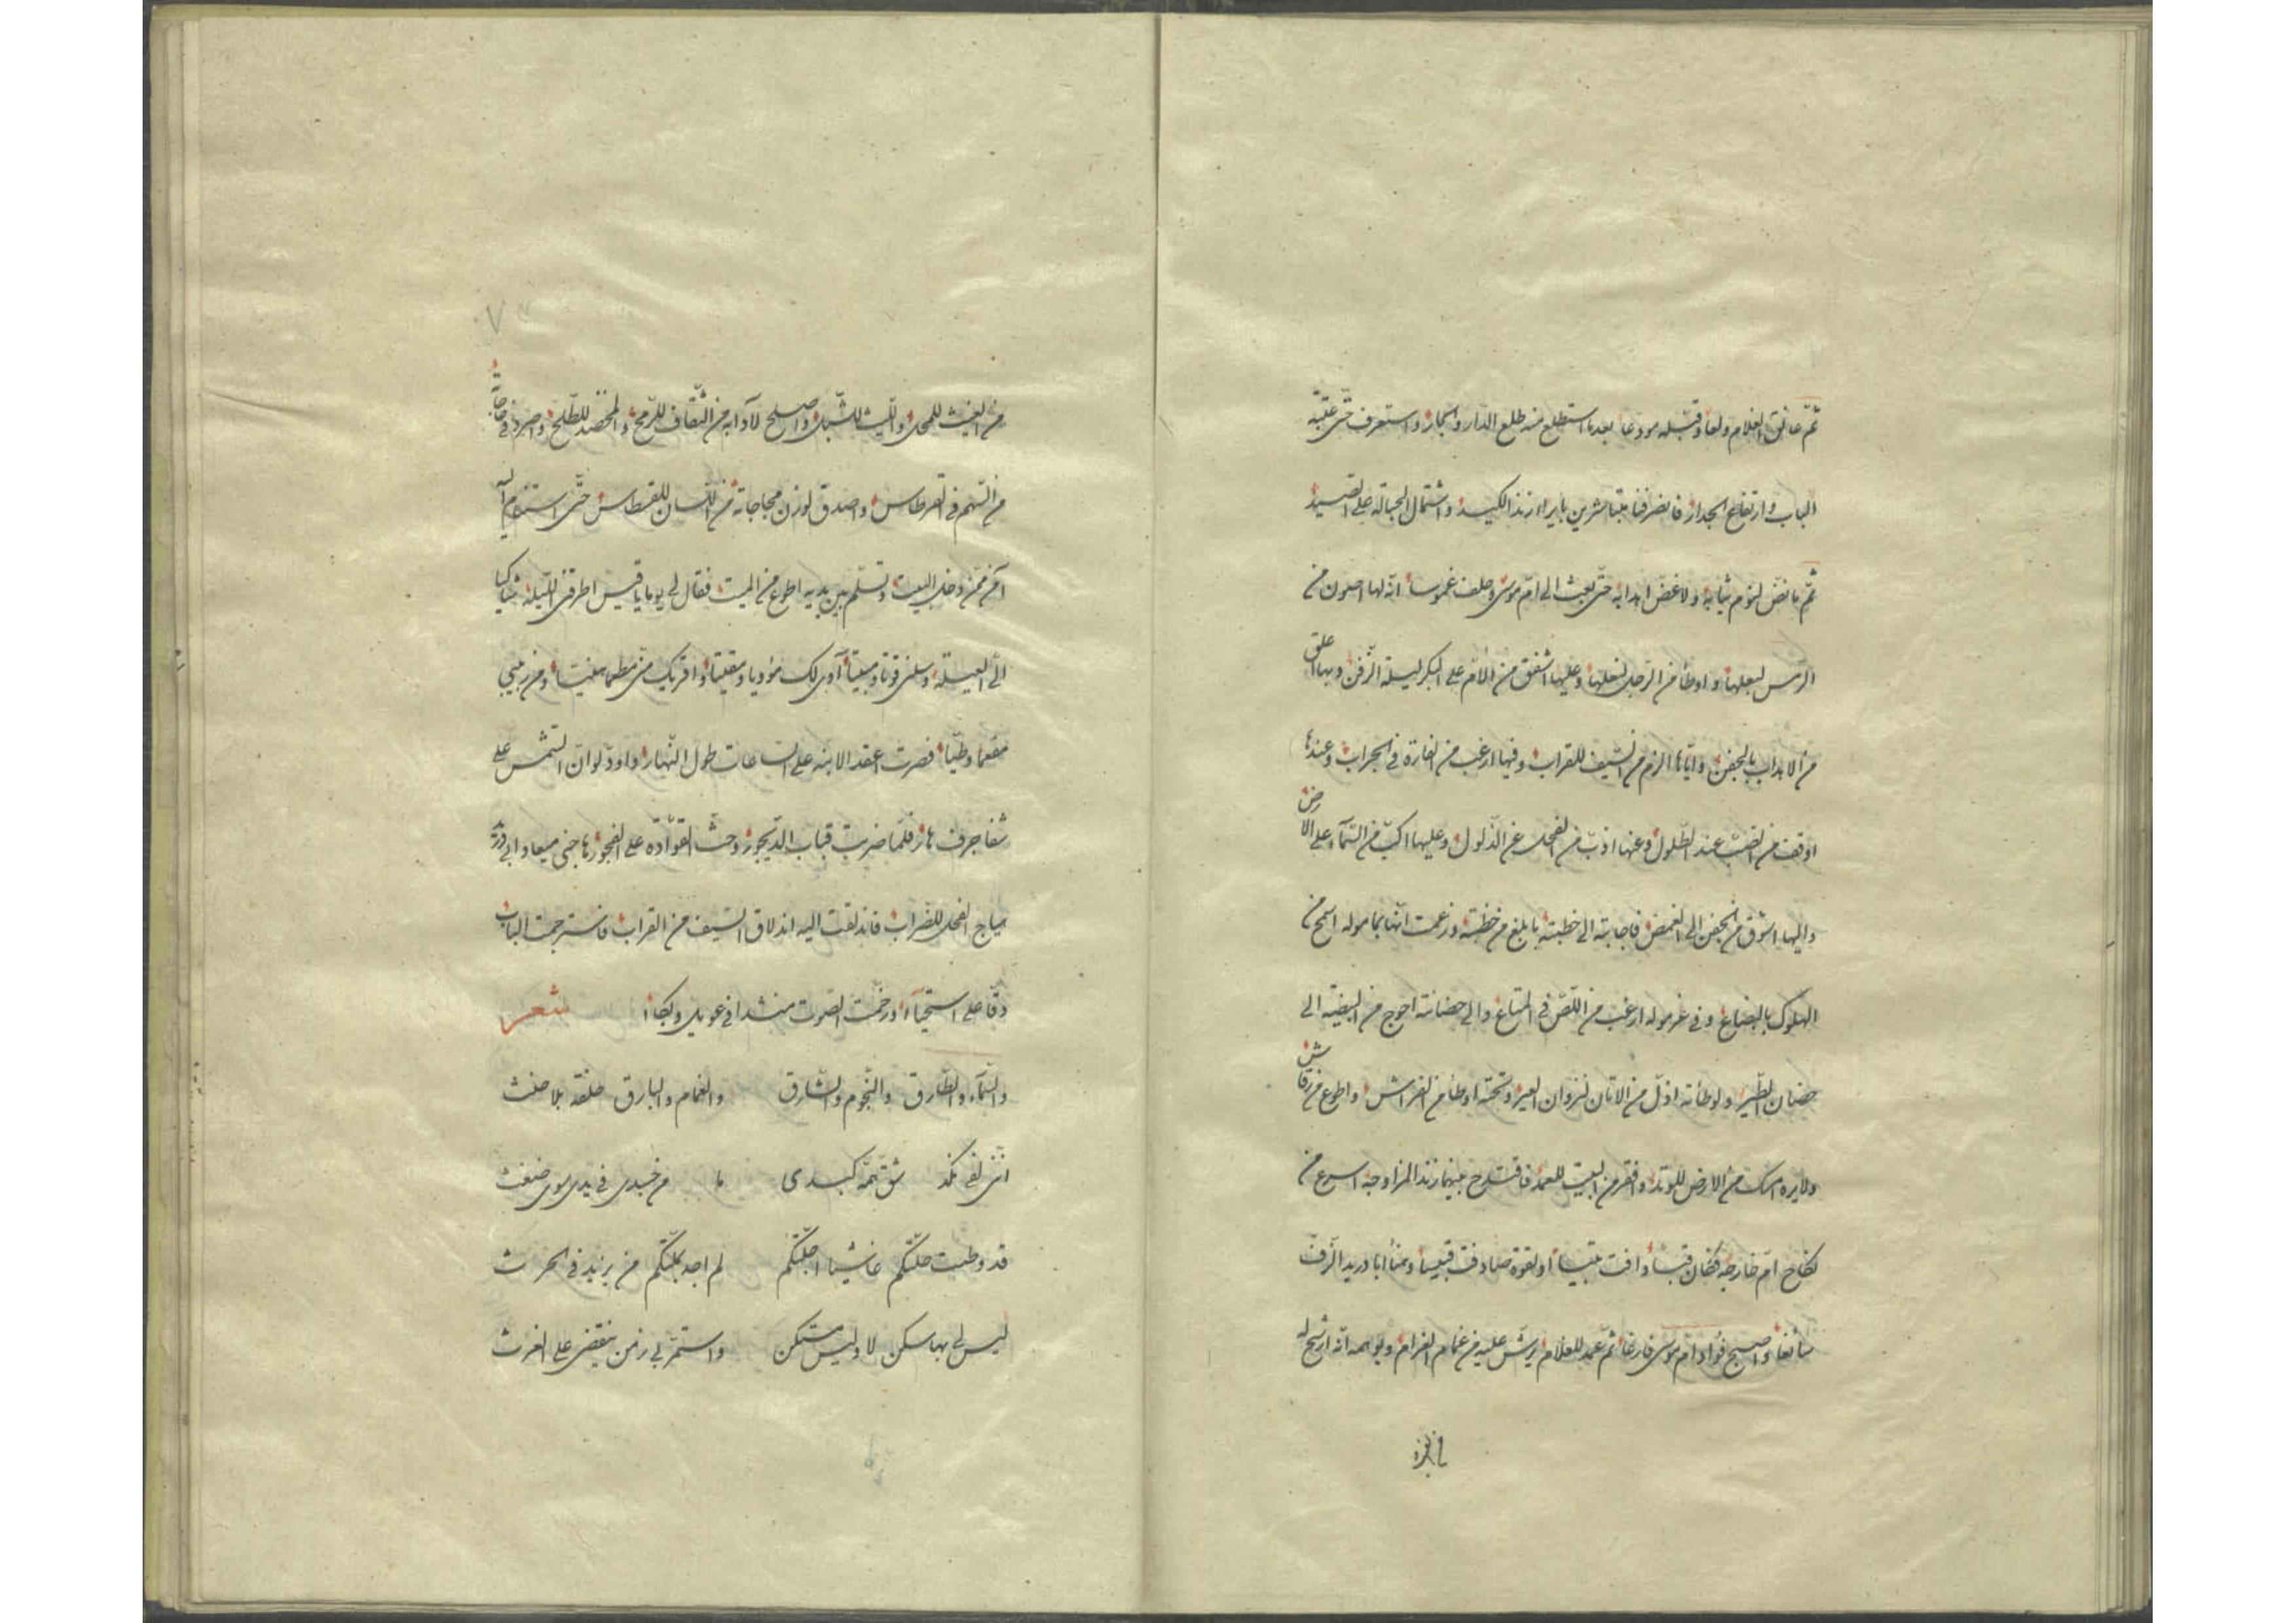 ثمّ عانق الغلام ولعا وقبّله مودعا بعدما استطلع منه طلع الدار والجار واستعرف حتّى عتبة
الباب وارتفاع الجدار فانصرفنا متباشرين بايراء زند الكيد واشتمال الحبالة على الصيد
ثمّ ما نضّ لنوم ثيابه ولا غضّ اهدابه حتّى بعث الى امّ موسى وحلف غموسا انّه لها اصون من
الرمس لبعلها واوطأ من الرجل لنعلها وعليها اشفق من الامّ على البكر ليلة الزفّ وبها اعلق
من الاهداب بالجفن وايّاها الزم من السّيف للقراب وفيها ارغب من الفارة فى الجراب وعندها
اوقف من الضبّ عند الطلول وعنها اذبّ من الفحل عن الذلول وعليها اكبّ من السّمآء على الارض
واليها اشوق من الجفن الى الغمض فاجابته الى خطبته بابلغ من خطبته وزعمت انّها بمأموله اسمح من
الهلوك بالبضاع وفى غرموله ارغب من اللّصّ فى المتاع والى حضانته احوج من البيضة الى
حضان الطّير ولوطأته اذلّ من الاتان لنزوان العير وتحته اوطأ من الفراش واطوع من رقاش
ولايره امسك من الارض للوتد وافقر من البيت للعمد فاقتدح بينهما زند المزاوجة اسرع من
نكاح امّ خارجة فكان قبسا وافت او لقوة صادفت قبيسا وهنأ ابا دريد الزفّ
سائغا واصبح فؤاد امّ موسى فارغا ثمّ عمد للغلام يرشّ عليه من غمام الغرام ويوهمه انّه ارشح له
من الغيث للمحل واللّيث للشّبل واصلح لآدابه من الثقاف للرّمح والمخضد للطّلح واصرد فى حاجاته
من السّهم فى القرطاس واصدق لوزن مجاجاته من اللّسان للقسطاس حتّى استنام اليه
آمن ممّن دخل البيت وتسلّم بين يديه اطوع من الميت فقال لى يوما يا قيس اطرقنى اللّيلة شاكيا
الىّ العيلة وسلنى قوتا ومبيتا آوى لك مؤويا ومقيتا واقريك من مطعما ومن ربيبى
مفعما وطيّا فصرت اعقد الابنه على السّاعات طول النّهار واودّ لو انّ الشّمس على
شفا جرف هار فلمّا ضربت قباب الدّيجور وحثّ القوّادة على الفجور هاجنى ميعاد ابى دريد
هياج الفحل للضّراب فاندلقت اليه اندلاق السّيف من القراب فاسترجت الباب
دقّا على استحيآء ورخّمت الصّوت منشدا فى عويل وبكاء شعر
والسّمآء والطّارق والنّجوم والشّارق والغمام والبارق حلفة بلا حنث
انّنى لفى نكد شقّ همّه كبدى ما من خبدى فى يدى سوى ضغث
قد وطيت حلّتكم غاشيا اجلّتكم لم اجد بكلّتكم من يزيد فى الحرث
ليس لى بها سكن لا وليس مستكن واستمرّ بى زمن ينقضى على الغرث